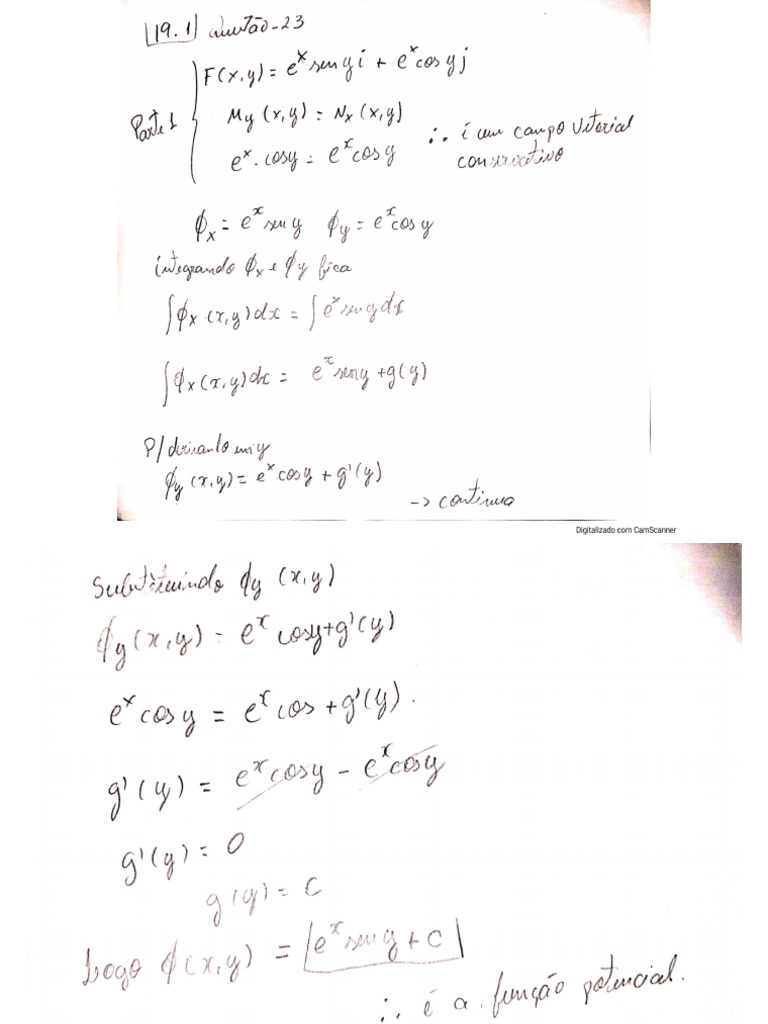 19.1 questão-23
Parte 1
F(x,y) = e^x sen y i + e^x cos y j
My (x,y) = Nx (x,y)
e^x . cosy = e^x cosy
∴ é um campo vetorial
conservativo
ϕx = e^x sen y ϕy = e^x cos y
integrando ϕx e ϕy fica
∫ϕx (x,y) dx = ∫e^x sen y dx
∫ϕx (x,y) dx = e^x sen y + g(y)
P/ derivando em y
ϕy (x,y) = e^x cosy + g'(y)
-> continua
Digitalizado com CamScanner
Substituindo ϕy (x,y)
ϕy (x,y) = e^x cosy + g'(y)
e^x cos y = e^x cos + g'(y).
g'(y) = e^x cosy - e^x cosy
g'(y) = 0
g(y) = C
Logo ϕ(x,y) = e^x sen y + C
∴ é a função potencial.